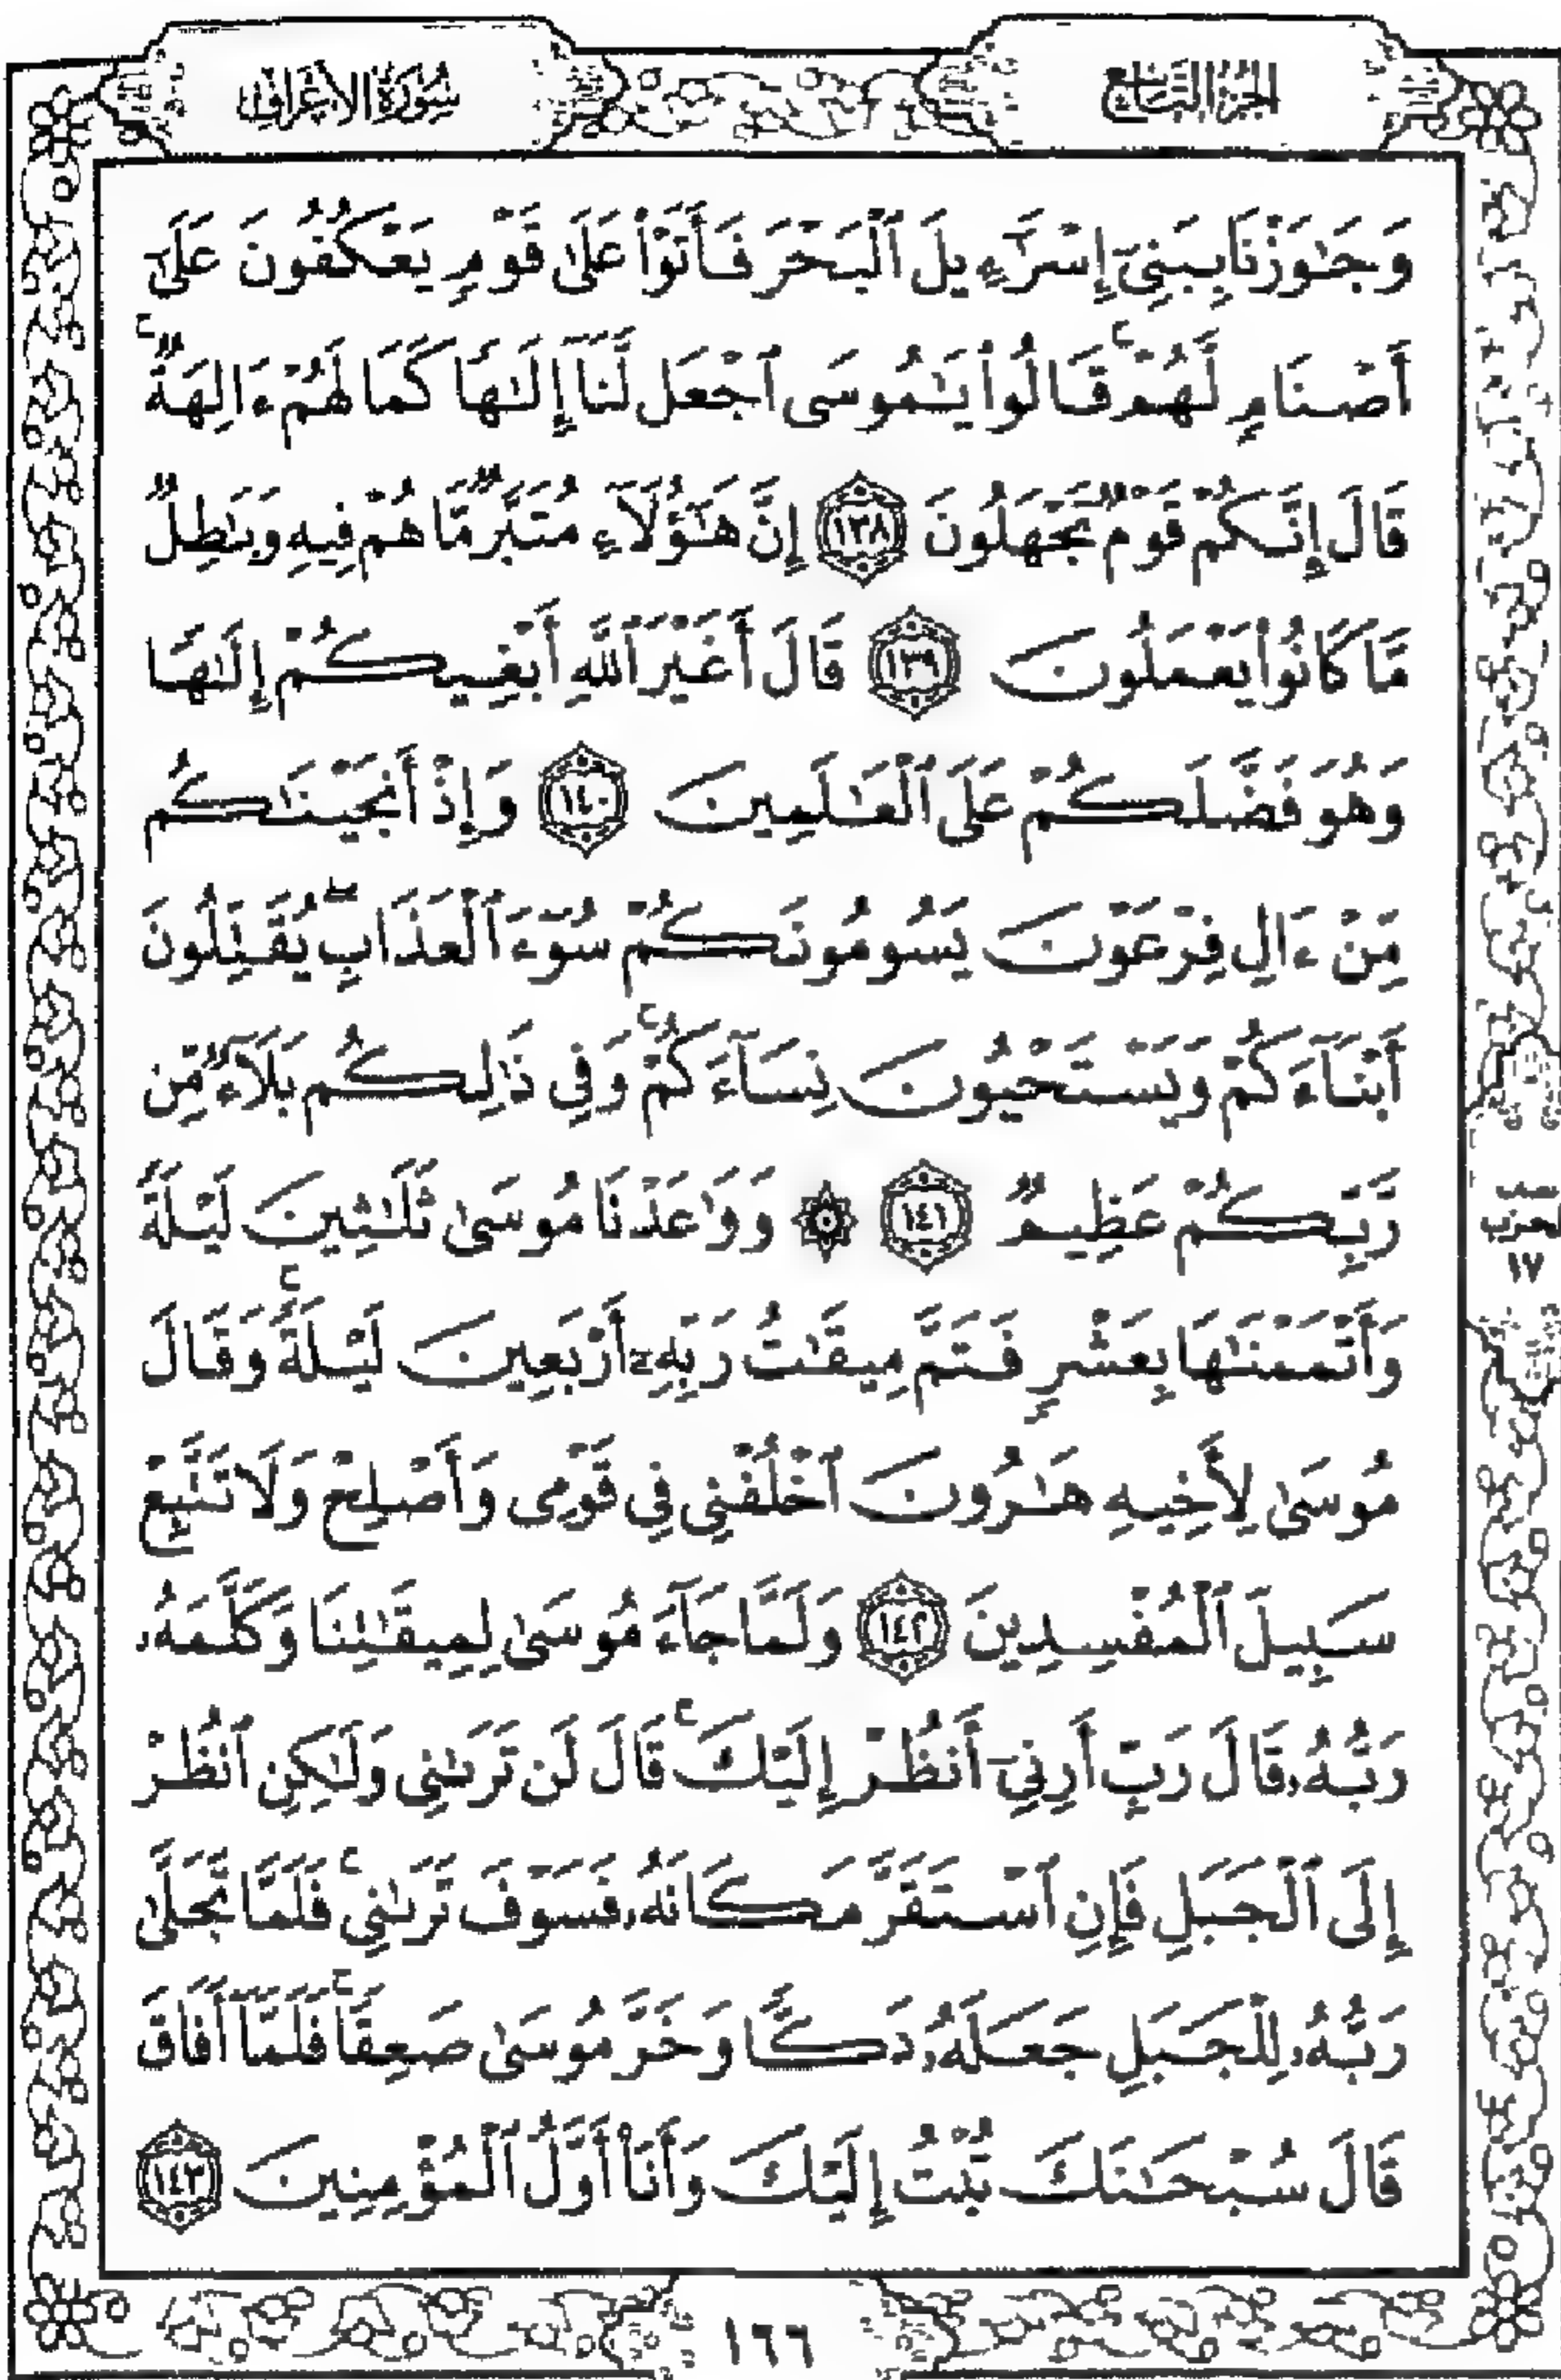 الجزء التاسع
سورة الأعراف
وَجَٰوَزْنَا بِبَنِىٓ إِسْرَٰٓءِيلَ ٱلْبَحْرَ فَأَتَوْا۟ عَلَىٰ قَوْمٍ يَعْكُفُونَ عَلَىٰٓ
أَصْنَامٍ لَّهُمْ ۚ قَالُوا۟ يَٰمُوسَى ٱجْعَل لَّنَآ إِلَٰهًا كَمَا لَهُمْ ءَالِهَةٌ ۚ
قَالَ إِنَّكُمْ قَوْمٌ تَجْهَلُونَ ١٣٨ إِنَّ هَٰٓؤُلَآءِ مُتَبَّرٌ مَّا هُمْ فِيهِ وَبَٰطِلٌ
مَّا كَانُوا۟ يَعْمَلُونَ ١٣٩ قَالَ أَغَيْرَ ٱللَّهِ أَبْغِيكُمْ إِلَٰهًا
وَهُوَ فَضَّلَكُمْ عَلَى ٱلْعَٰلَمِينَ ١٤٠ وَإِذْ أَنجَيْنَٰكُم
مِّنْ ءَالِ فِرْعَوْنَ يَسُومُونَكُمْ سُوٓءَ ٱلْعَذَابِ ۖ يُقَتِّلُونَ
أَبْنَآءَكُمْ وَيَسْتَحْيُونَ نِسَآءَكُمْ ۚ وَفِى ذَٰلِكُم بَلَآءٌ مِّن
رَّبِّكُمْ عَظِيمٌ ١٤١ ۞ وَوَٰعَدْنَا مُوسَىٰ ثَلَٰثِينَ لَيْلَةً
وَأَتْمَمْنَٰهَا بِعَشْرٍ فَتَمَّ مِيقَٰتُ رَبِّهِۦٓ أَرْبَعِينَ لَيْلَةً ۚ وَقَالَ
مُوسَىٰ لِأَخِيهِ هَٰرُونَ ٱخْلُفْنِى فِى قَوْمِى وَأَصْلِحْ وَلَا تَتَّبِعْ
سَبِيلَ ٱلْمُفْسِدِينَ ١٤٢ وَلَمَّا جَآءَ مُوسَىٰ لِمِيقَٰتِنَا وَكَلَّمَهُۥ
رَبُّهُۥ قَالَ رَبِّ أَرِنِىٓ أَنظُرْ إِلَيْكَ ۚ قَالَ لَن تَرَىٰنِى وَلَٰكِنِ ٱنظُرْ
إِلَى ٱلْجَبَلِ فَإِنِ ٱسْتَقَرَّ مَكَانَهُۥ فَسَوْفَ تَرَىٰنِى ۚ فَلَمَّا تَجَلَّىٰ
رَبُّهُۥ لِلْجَبَلِ جَعَلَهُۥ دَكًّا وَخَرَّ مُوسَىٰ صَعِقًا ۚ فَلَمَّآ أَفَاقَ
قَالَ سُبْحَٰنَكَ تُبْتُ إِلَيْكَ وَأَنَا۠ أَوَّلُ ٱلْمُؤْمِنِينَ ١٤٣
نصف
الحزب
١٧
١٦٦